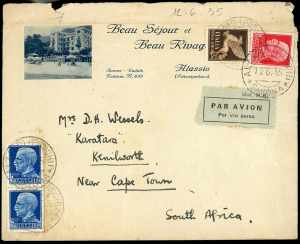 12-6-35
Beau Séjour et
Beau Rivag
Alassio
PAR AVION
Per via aerea
Mrs D. H. Wessels
"Karatara"
Kenilworth
Near Cape Town
South Africa.